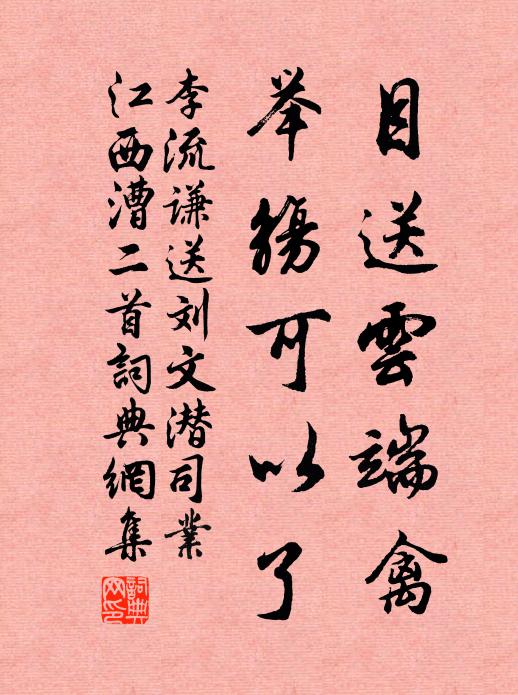 目送雲端禽
举觞可以了
李流谦送刘文潜司業
江西漕二首詞典網集
詞典网印